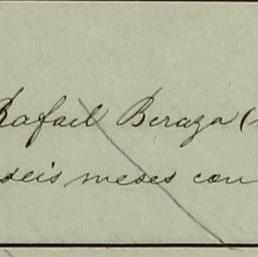 Rafael Beraza (
seis meses con